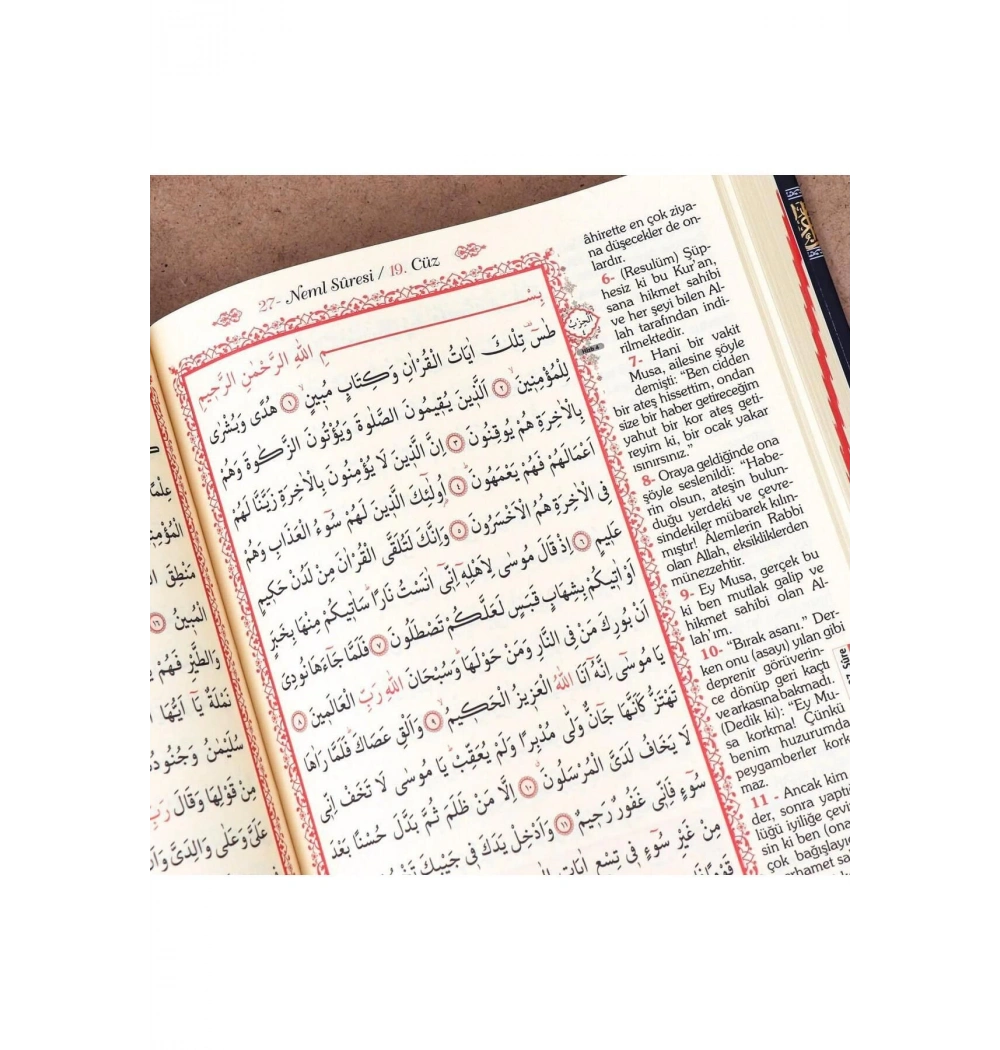 27- Neml Sûresi / 19. Cüz
بِسْــــــمِ اللّٰهِ الرَّحْمٰنِ الرَّحٖيمِ
طٰسٓ تِلْكَ اٰيَاتُ الْقُرْاٰنِ وَكِتَابٍ مُبٖينٍ ﴿١﴾ هُدًى وَبُشْرٰى
لِلْمُؤْمِنٖينَ ﴿٢﴾ اَلَّذٖينَ يُقٖيمُونَ الصَّلٰوةَ وَيُؤْتُونَ الزَّكٰوةَ وَهُمْ
بِالْاٰخِرَةِ هُمْ يُوقِنُونَ ﴿٣﴾ اِنَّ الَّذٖينَ لَا يُؤْمِنُونَ بِالْاٰخِرَةِ زَيَّنَّا لَهُمْ
اَعْمَالَهُمْ فَهُمْ يَعْمَهُونَ ﴿٤﴾ اُولٰٓئِكَ الَّذٖينَ لَهُمْ سُٓوءُ الْعَذَابِ وَهُمْ
فِى الْاٰخِرَةِ هُمُ الْاَخْسَرُونَ ﴿٥﴾ وَاِنَّكَ لَتُلَقَّى الْقُرْاٰنَ مِنْ لَدُنْ حَكٖيمٍ
عَلٖيمٍ ﴿٦﴾ اِذْ قَالَ مُوسٰى لِاَهْلِهٖٓ اِنّٖٓى اٰنَسْتُ نَارًا سَاٰتٖيكُمْ مِنْهَا بِخَبَرٍ
اَوْ اٰتٖيكُمْ بِشِهَابٍ قَبَسٍ لَعَلَّكُمْ تَصْطَلُونَ ﴿٧﴾ فَلَمَّا جَٓاءَهَا نُودِىَ
اَنْ بُورِكَ مَنْ فِى النَّارِ وَمَنْ حَوْلَهَا وَسُبْحَانَ اللّٰهِ رَبِّ الْعَالَمٖينَ ﴿٨﴾
يَا مُوسٰٓى اِنَّهُٓ اَنَا اللّٰهُ الْعَزٖيزُ الْحَكٖيمُ ﴿٩﴾ وَاَلْقِ عَصَاكَ فَلَمَّا رَاٰهَا
تَهْتَزُّ كَاَنَّهَا جَٓانٌّ وَلّٰى مُدْبِرًا وَلَمْ يُعَقِّبْ يَا مُوسٰى لَا تَخَفْ اِنّٖى
لَا يَخَافُ لَدَىَّ الْمُرْسَلُونَ ﴿١٠﴾ اِلَّا مَنْ ظَلَمَ ثُمَّ بَدَّلَ حُسْنًا بَعْدَ
سُٓوءٍ فَاِنّٖى غَفُورٌ رَحٖيمٌ ﴿١١﴾ وَاَدْخِلْ يَدَكَ فٖى جَيْبِكَ
مِنْ غَيْرِ سُٓوءٍ فٖى تِسْعِ اٰيَاتٍ
الحزب
âhirette en çok ziya-
na düşecekler de on-
lardır.
6- (Resulüm) Şüp-
hesiz ki bu Kur'an,
sana hikmet sahibi
ve her şeyi bilen Al-
lah tarafından indi-
rilmektedir.
7- Hani bir vakit
Musa, ailesine şöyle
demişti: "Ben cidden
bir ateş hissettim, ondan
size bir haber getireceğim
yahut bir kor ateş geti-
reyim ki, bir ocak yakar
ısınırsınız."
8- Oraya geldiğinde ona
şöyle seslenildi: "Habe-
rin olsun, ateşin bulun-
duğu yerdeki ve çevre-
sindekiler mübarek kılın-
mıştır! Âlemlerin Rabbi
olan Allah, eksikliklerden
münezzehtir.
9- Ey Musa, gerçek bu
ki ben mutlak galip ve
hikmet sahibi olan Al-
lah'ım.
10- "Bırak asanı." Der-
ken onu (asayı) yılan gibi
deprenir görüverin-
ce dönüp geri kaçtı
ve arkasına bakmadı.
(Dedik ki): "Ey Mu-
sa korkma! Çünkü
benim huzurumda
peygamberler kork-
maz.
11 - Ancak kim
der, sonra yaptı
lüğü iyiliğe çevi
sin ki ben (ona
çok bağışlayıc
erhamet sa
الْمُؤْمِنٖ
مَنْطِقَ ال
الْمُبٖينُ ﴿١٦﴾
وَالطَّيْرِ فَهُمْ
نَمْلَةٌ يَٓا اَيُّهَا
سُلَيْمٰنُ وَجُنُودُ
مِنْ قَوْلِهَا وَقَالَ رَبِّ
عَلَىَّ وَعَلٰى وَالِدَىَّ وَاَ